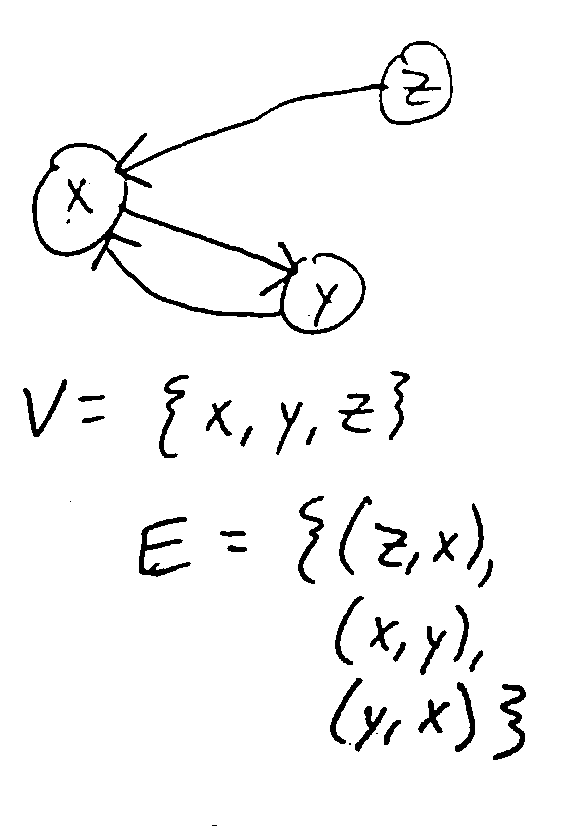 z
x
y
V = {x, y, z}
E = {(z, x),
(x, y),
(y, x)}